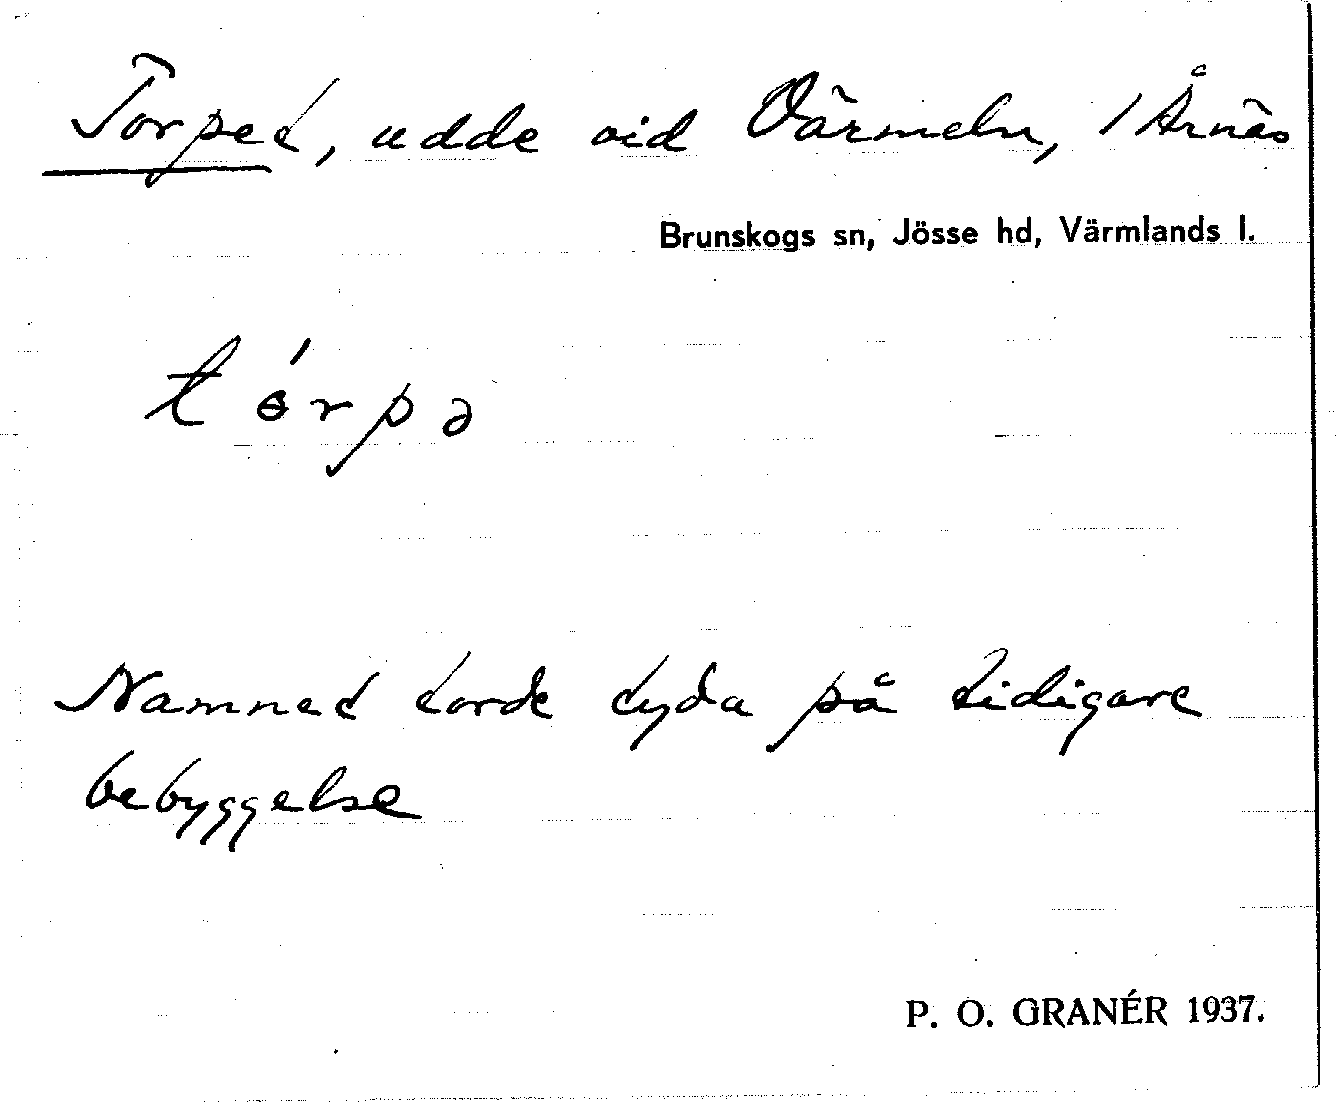 Torpet, udde vid Värmeln, / Årnäs
Brunskogs sn, Jösse hd, Värmlands l.
tɵ́rpə
Namnet torde tyda på tidigare
bebyggelse
P. O. GRANÉR 1937.